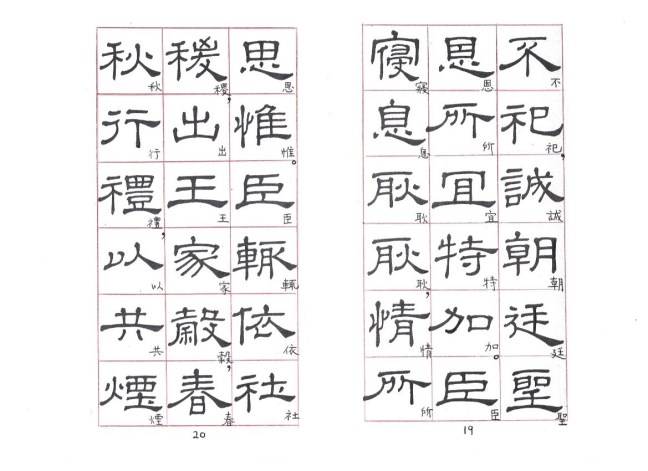 不祀誠朝廷聖
不祀，誠朝廷聖
恩所宜特加臣
恩所宜特加。臣
寢息耿耿情所
寢息耿耿，情所
19
思惟臣輒依社
思惟。臣輒依社
稷出王家穀春
稷，出王家穀，春
秋行禮以共煙
秋行禮，以共煙
20